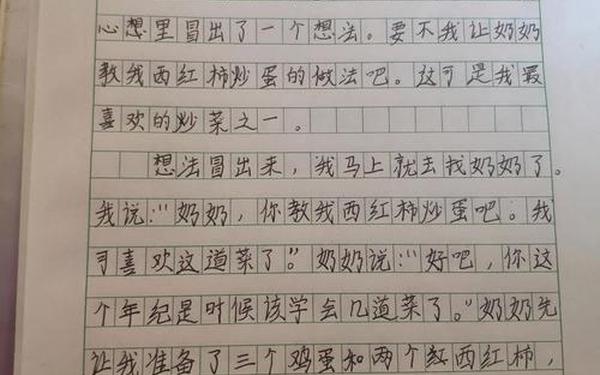 心想里冒出了一个想法。要不我让奶奶
教我西红柿炒蛋的做法吧。这可是我最
喜欢的炒菜之一。
想法冒出来，我马上就去找奶奶了。
我说："奶奶，你教我西红柿炒蛋吧。我
可喜欢这道菜了。"奶奶说："好吧，你这
个年纪是时候该学会几道菜了。"奶奶先
让我准备了三个鸡蛋和两个红西红柿，